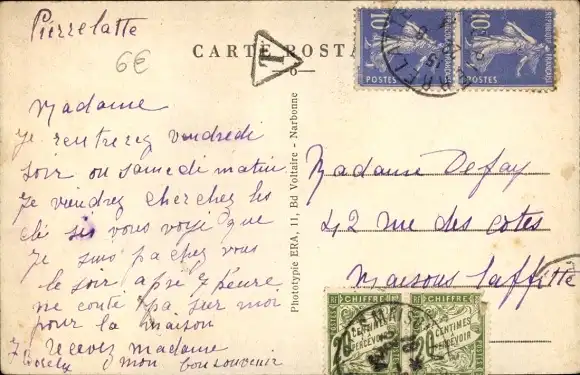 Pierrelatte
6€
CARTE POSTA
T
10c
POSTES
10c
POSTES
Madame
je rentrerez vendredi
soir ou samedi matin
Je viendrez cherchez les
clé si vous voyé que
je suis pa chez vous
le soir apre 7 heure
ne conté pa sur moi
pour la maison
recevez madame
mon bon souvenir
Phototypie ERA, 11, Bd Voltaire - Narbonne
Madame Defay
42 rue des cotes
Maisons Laffitte
CHIFFRE
20 CENTIMES
A PERCEVOIR
CHIFFRE
20 CENTIMES
A PERCEVOIR